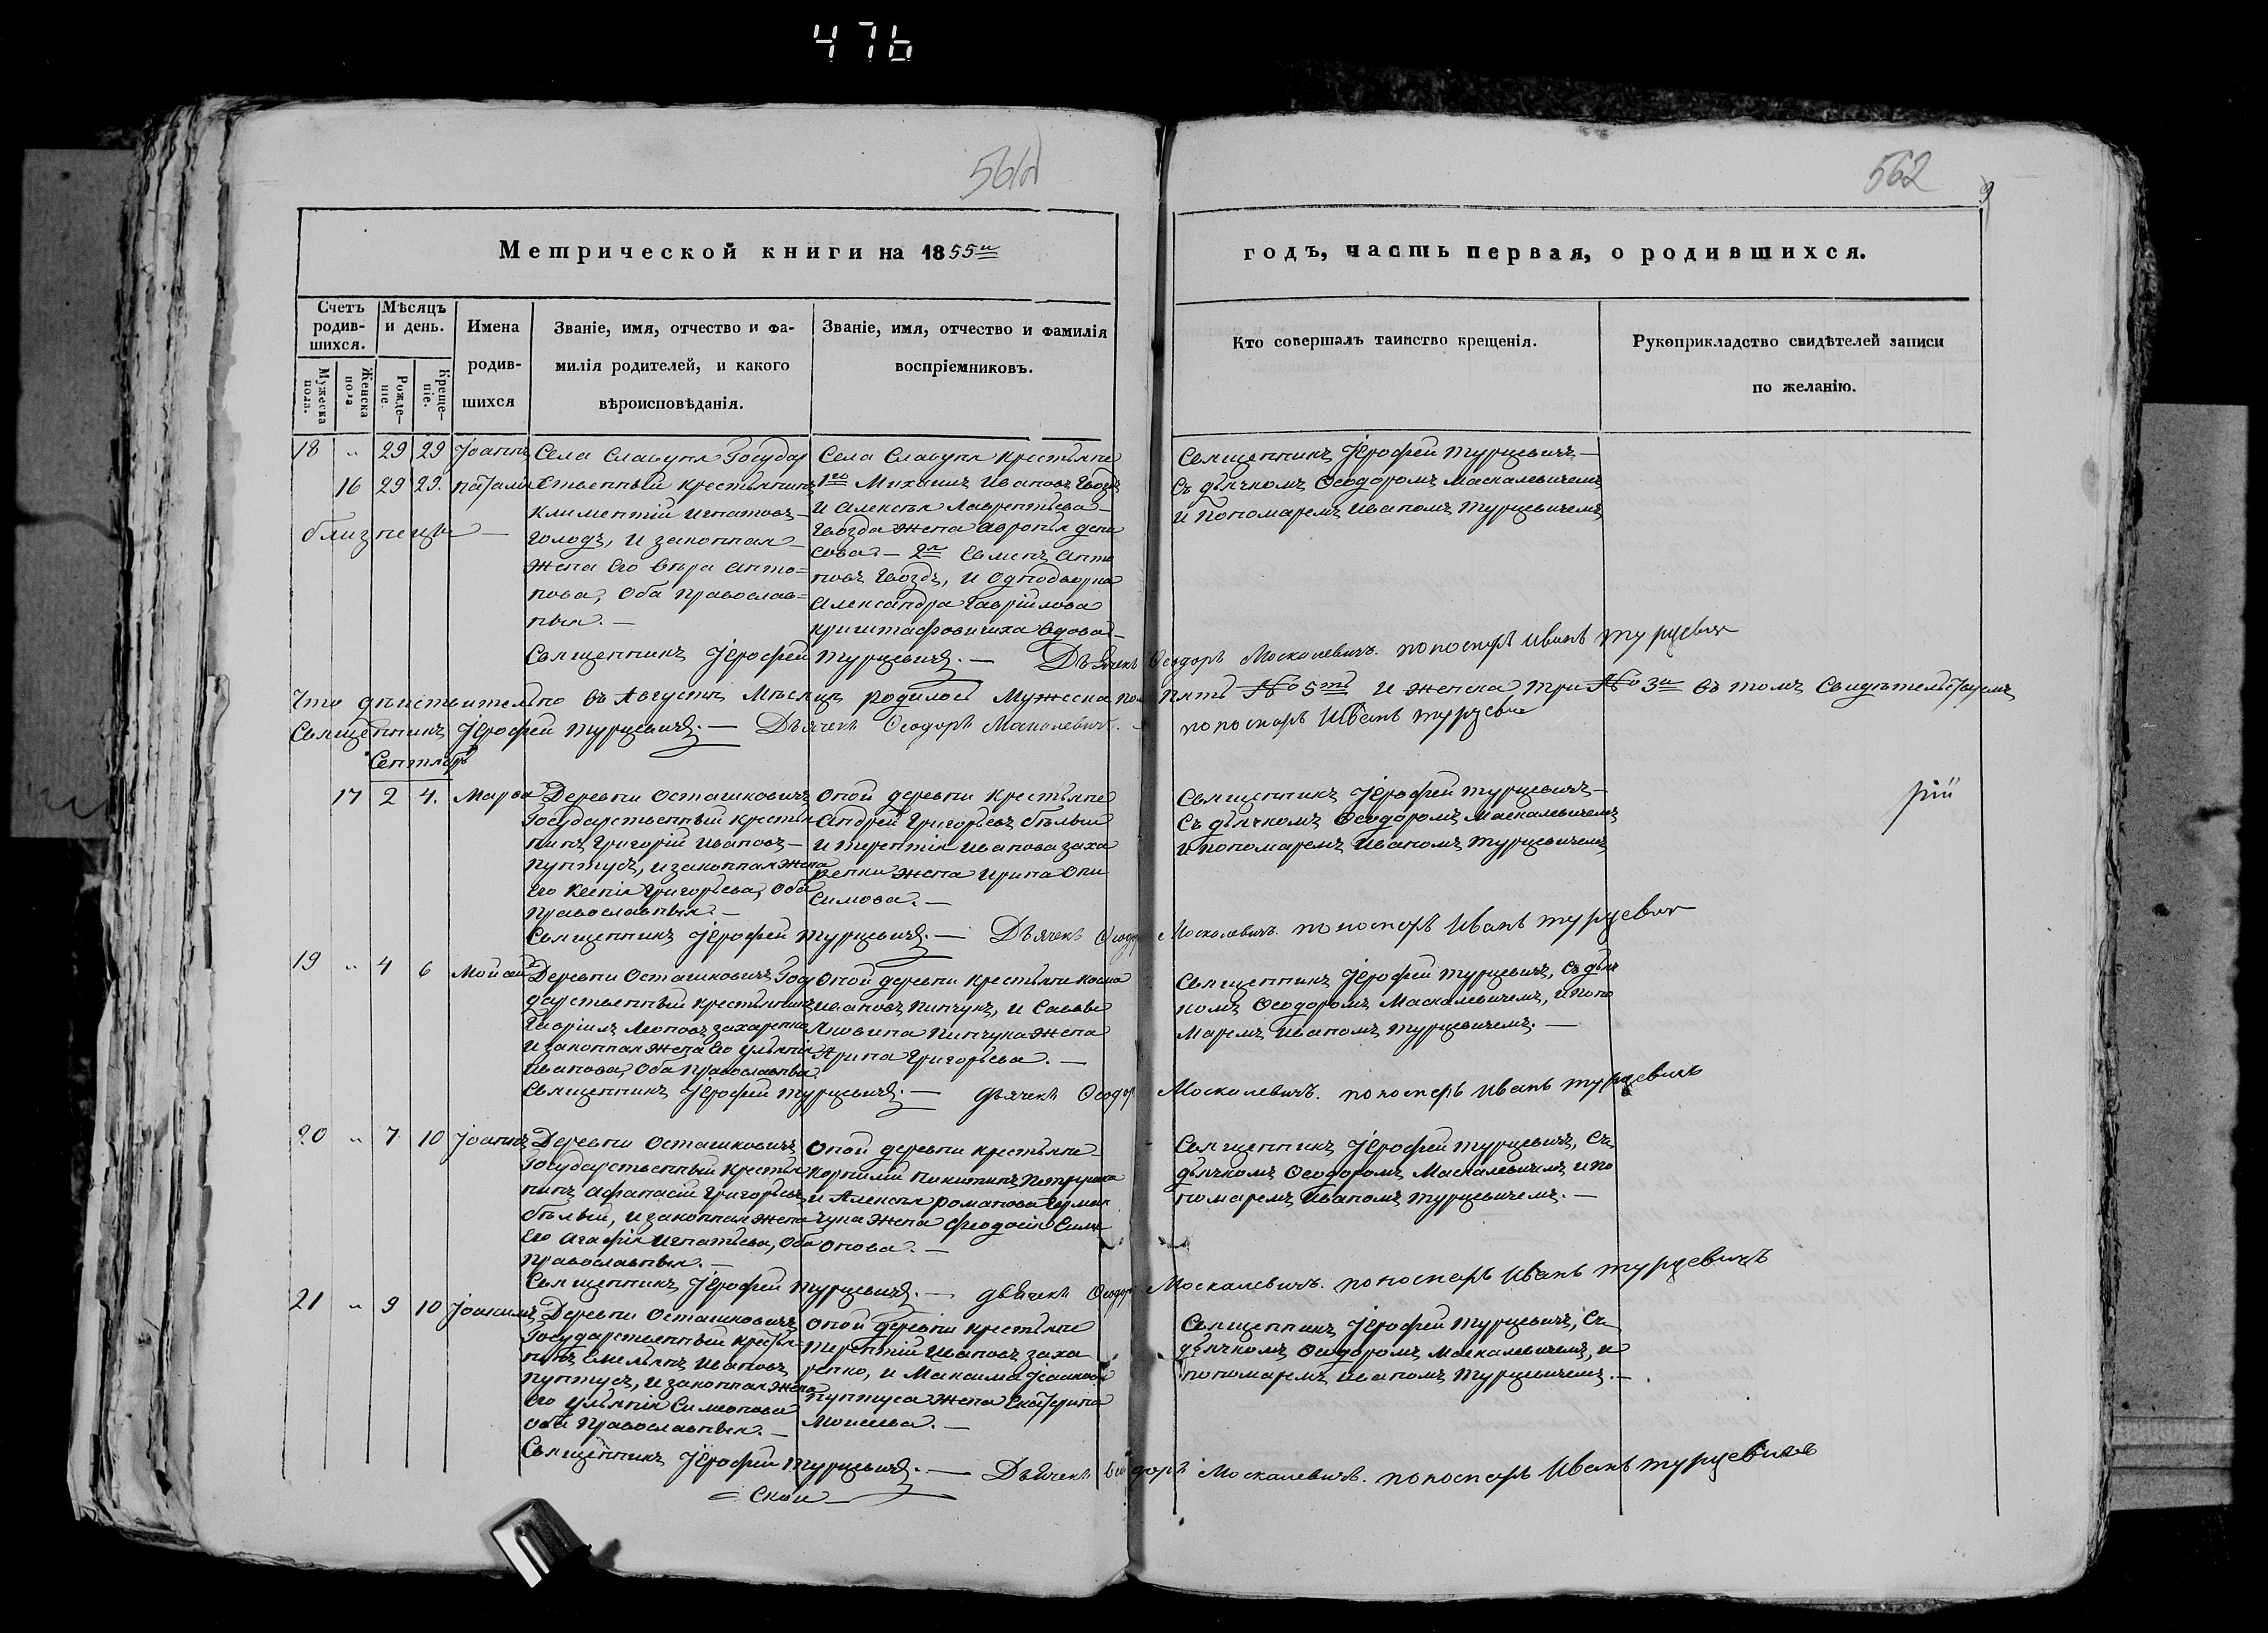 476
561
562
9
Метрической книги на 1855й
годъ, часть первая, о родившихся.
Счетъ родив-шихся.
Мѣсяцъ и день.
Имена родив-шихся
Званіе, имя, отчество и фа-
милія родителей, и какого
вѣроисповѣданія.
Званіе, имя, отчество и фамилія
воспріемниковъ.
Кто совершалъ таинство крещенія.
Рукоприкладство свидѣтелей записи
по желанію.
Мужеска пола.
Женска пола.
Рожде-ніе.
Креще-ніе.
18 " 29 29 Іоаннъ
16 29 29. Наталія
близнецы —
Села Славупя Государ
ственный крестьянинъ
Климентій Игнатовъ
Голодъ, и законная
жена его Вѣра Анто=
нова, оба православ=
ныя. —
Села Славупя крестьяне
1го Михаилъ Ивановъ Гвоздъ
и Алексѣя Лаврентьева
Гвозда жена Авропія Дени
сова. — 2я Семенъ Анто
новъ Гвоздъ, и однодворка
Александра Гавріилова
Криштафовичиха вдова —
Священникъ Іерофей Турцевичъ —
съ дьячкомъ Ѳеодоромъ Маскалевичемъ
и пономаремъ Иваномъ Турцевичемъ
Священникъ Іерофей Турцевичъ. — Дьячекъ Ѳеодоръ Москалевичъ. пономарь Иванъ Турцевич
Что дѣйствительно въ Августѣ мѣсяцѣ родилось мужеска пола пять № 5ть и женска три № 3и въ томъ свидѣтельствуемъ
Священникъ Іерофей Турцевичъ. — Дьячекъ Ѳеодоръ Маскалевичъ. — пономарь Иванъ Турцевич
Сентябрь
17 2 4. Марѳа
Деревни Осташковичъ
Государственный крестья
нинъ Григорій Ивановъ —
Пунтусъ, и законная жена
его Ксенія Григорьева, оба
православныя. —
Оной деревни крестьяне
Андрей Григорьевъ Бѣлый
и Терентія Иванова Заха
ренки жена Ирина Они
симова. —
Священникъ Іерофей Турцевичъ —
съ дьячкомъ Ѳеодоромъ Маскалевичемъ
и пономаремъ Иваномъ Турцевичемъ
рій
Священникъ Іерофей Турцевичъ. — Дьячекъ Ѳеодор Москалевичъ. пономарь Иванъ Турцевич
19 " 4 6 Моисей
Деревни Осташковичъ Госу
дарственный крестьянинъ
Гавріилъ Леоновъ Захаренко
и законная жена его Ульянія
Иванова, оба православныя
Оной деревни крестьяне Косма
Ивановъ Пинчукъ, и Саввы
Яковина Пинчука жена
Арина Григорьева. —
Священникъ Іерофей Турцевичъ, съ дьяч
комъ Ѳеодоромъ Маскалевичемъ, и поно
маремъ Иваномъ Турцевичемъ. —
Священникъ Іерофей Турцевичъ. — Дьячекъ Ѳеодор Москалевичъ. пономарь Иванъ Турцевичъ
20 " 7 10 Іоаннъ
Деревни Осташковичъ
Государственный крестья
нинъ Афанасій Григорьевъ
Бѣлый, и законная жена
его Агафія Игнатьева, оба
православныя. —
Оной деревни крестьяне
Корнилій Никитинъ
и Алексѣя Романова
жена Феодосія Сим
онова. —
Священникъ Іерофей Турцевичъ, съ
дьячкомъ Ѳеодоромъ Маскалевичемъ и по
номаремъ Иваномъ Турцевичемъ. —
Священникъ Іерофей Турцевичъ. — Дьячекъ Ѳеодор Москалевичъ. пономарь Иванъ Турцевичъ
21 " 9 10 Іоакимъ
Деревни Осташковичъ
Государственный крестья
нинъ Емельянъ Ивановъ
Пунтусъ, и законная жена
его Ульянія Симеонова
оба православныя. —
Оной деревни крестьяне
Терентій Ивановъ Заха
ренко, и Максима
Пунтуса жена Екатерина
Моисеева. —
Священникъ Іерофей Турцевичъ, съ
дьячкомъ Ѳеодоромъ Маскалевичемъ, и
пономаремъ Иваномъ Турцевичемъ. —
Священникъ Іерофей Турцевичъ. — Дьячекъ Ѳеодоръ Москалевичъ. пономарь Иванъ Турцевичъ